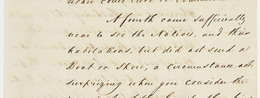 A fourth came sufficiently
near to see the Natives, and their
habitations, but did not send a
Boat on Shore, a circumstance not
surprizing when you consider the